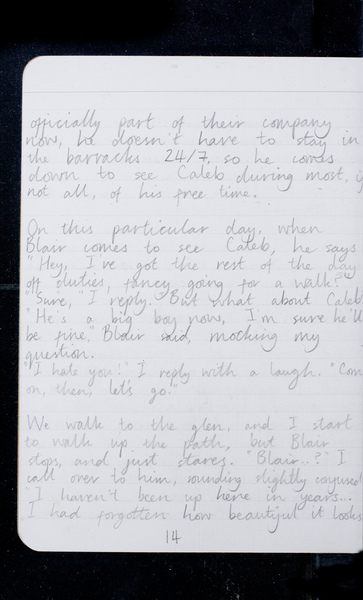 officially part of their company
now, he doesn't have to stay in
the barracks 24/7, so he comes
down to see Caleb during most, if
not all, of his free time.
On this particular day, when
Blair comes to see Caleb, he says
"Hey, I've got the rest of the day
off duties, fancy going for a walk?"
"Sure," I reply. "But what about Caleb
"He's a big boy now, I'm sure he'll
be fine," Blair said, mocking my
question.
"I hate you!" I reply with a laugh. "Com
on, then, let's go."
We walk to the glen, and I start
to walk up the path, but Blair
stops, and just stares. "Blair..?" I
call over to him, sounding slightly confused
"I haven't been up here in years...
I had forgotten how beautiful it looks
14